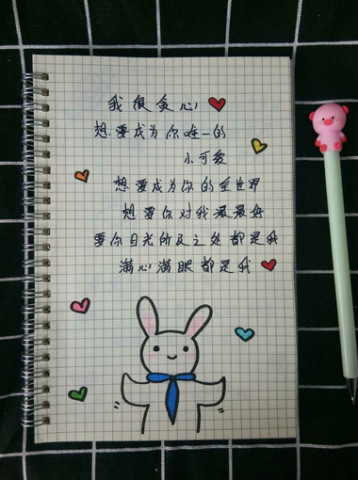 我很贪心
想要成为你唯一的
小可爱
想要成为你的全世界
想要你对我最最好
要你目光所及之处都是我
满心满眼都是我